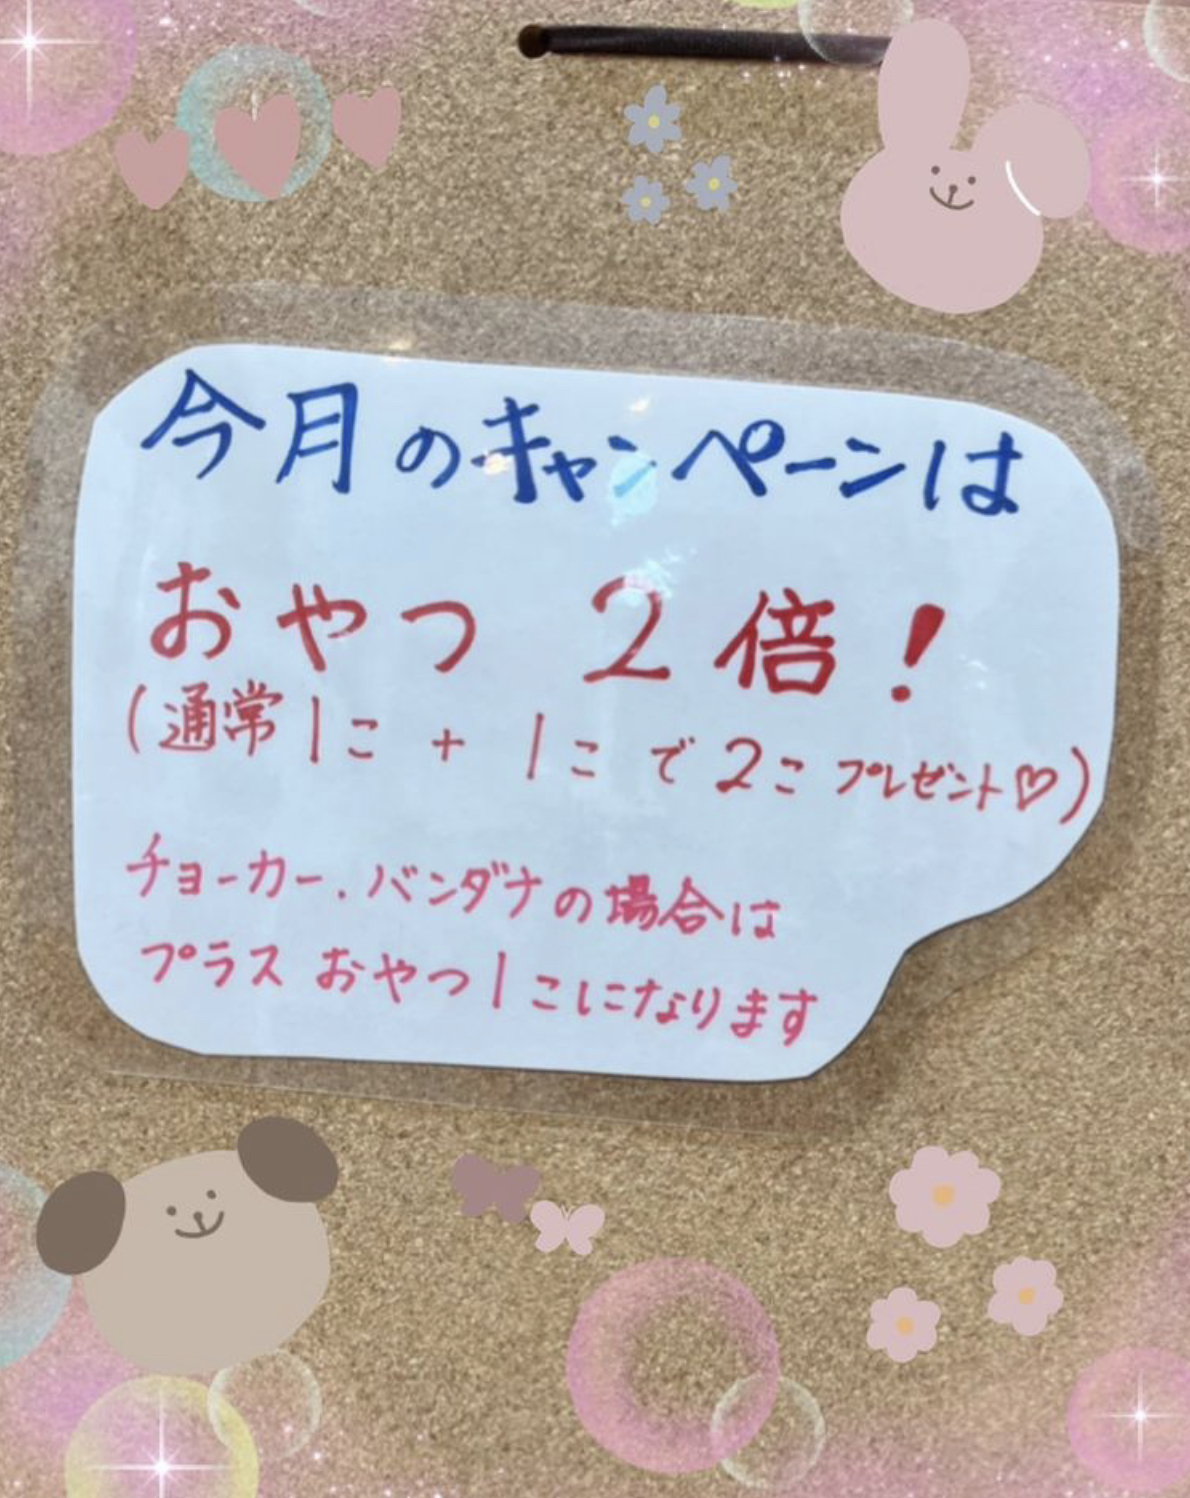 今月のキャンペーンは
おやつ 2倍!
(通常1こ + 1こで2こプレゼント♡)
チョーカー.バンダナの場合は
プラス おやつ1こになります